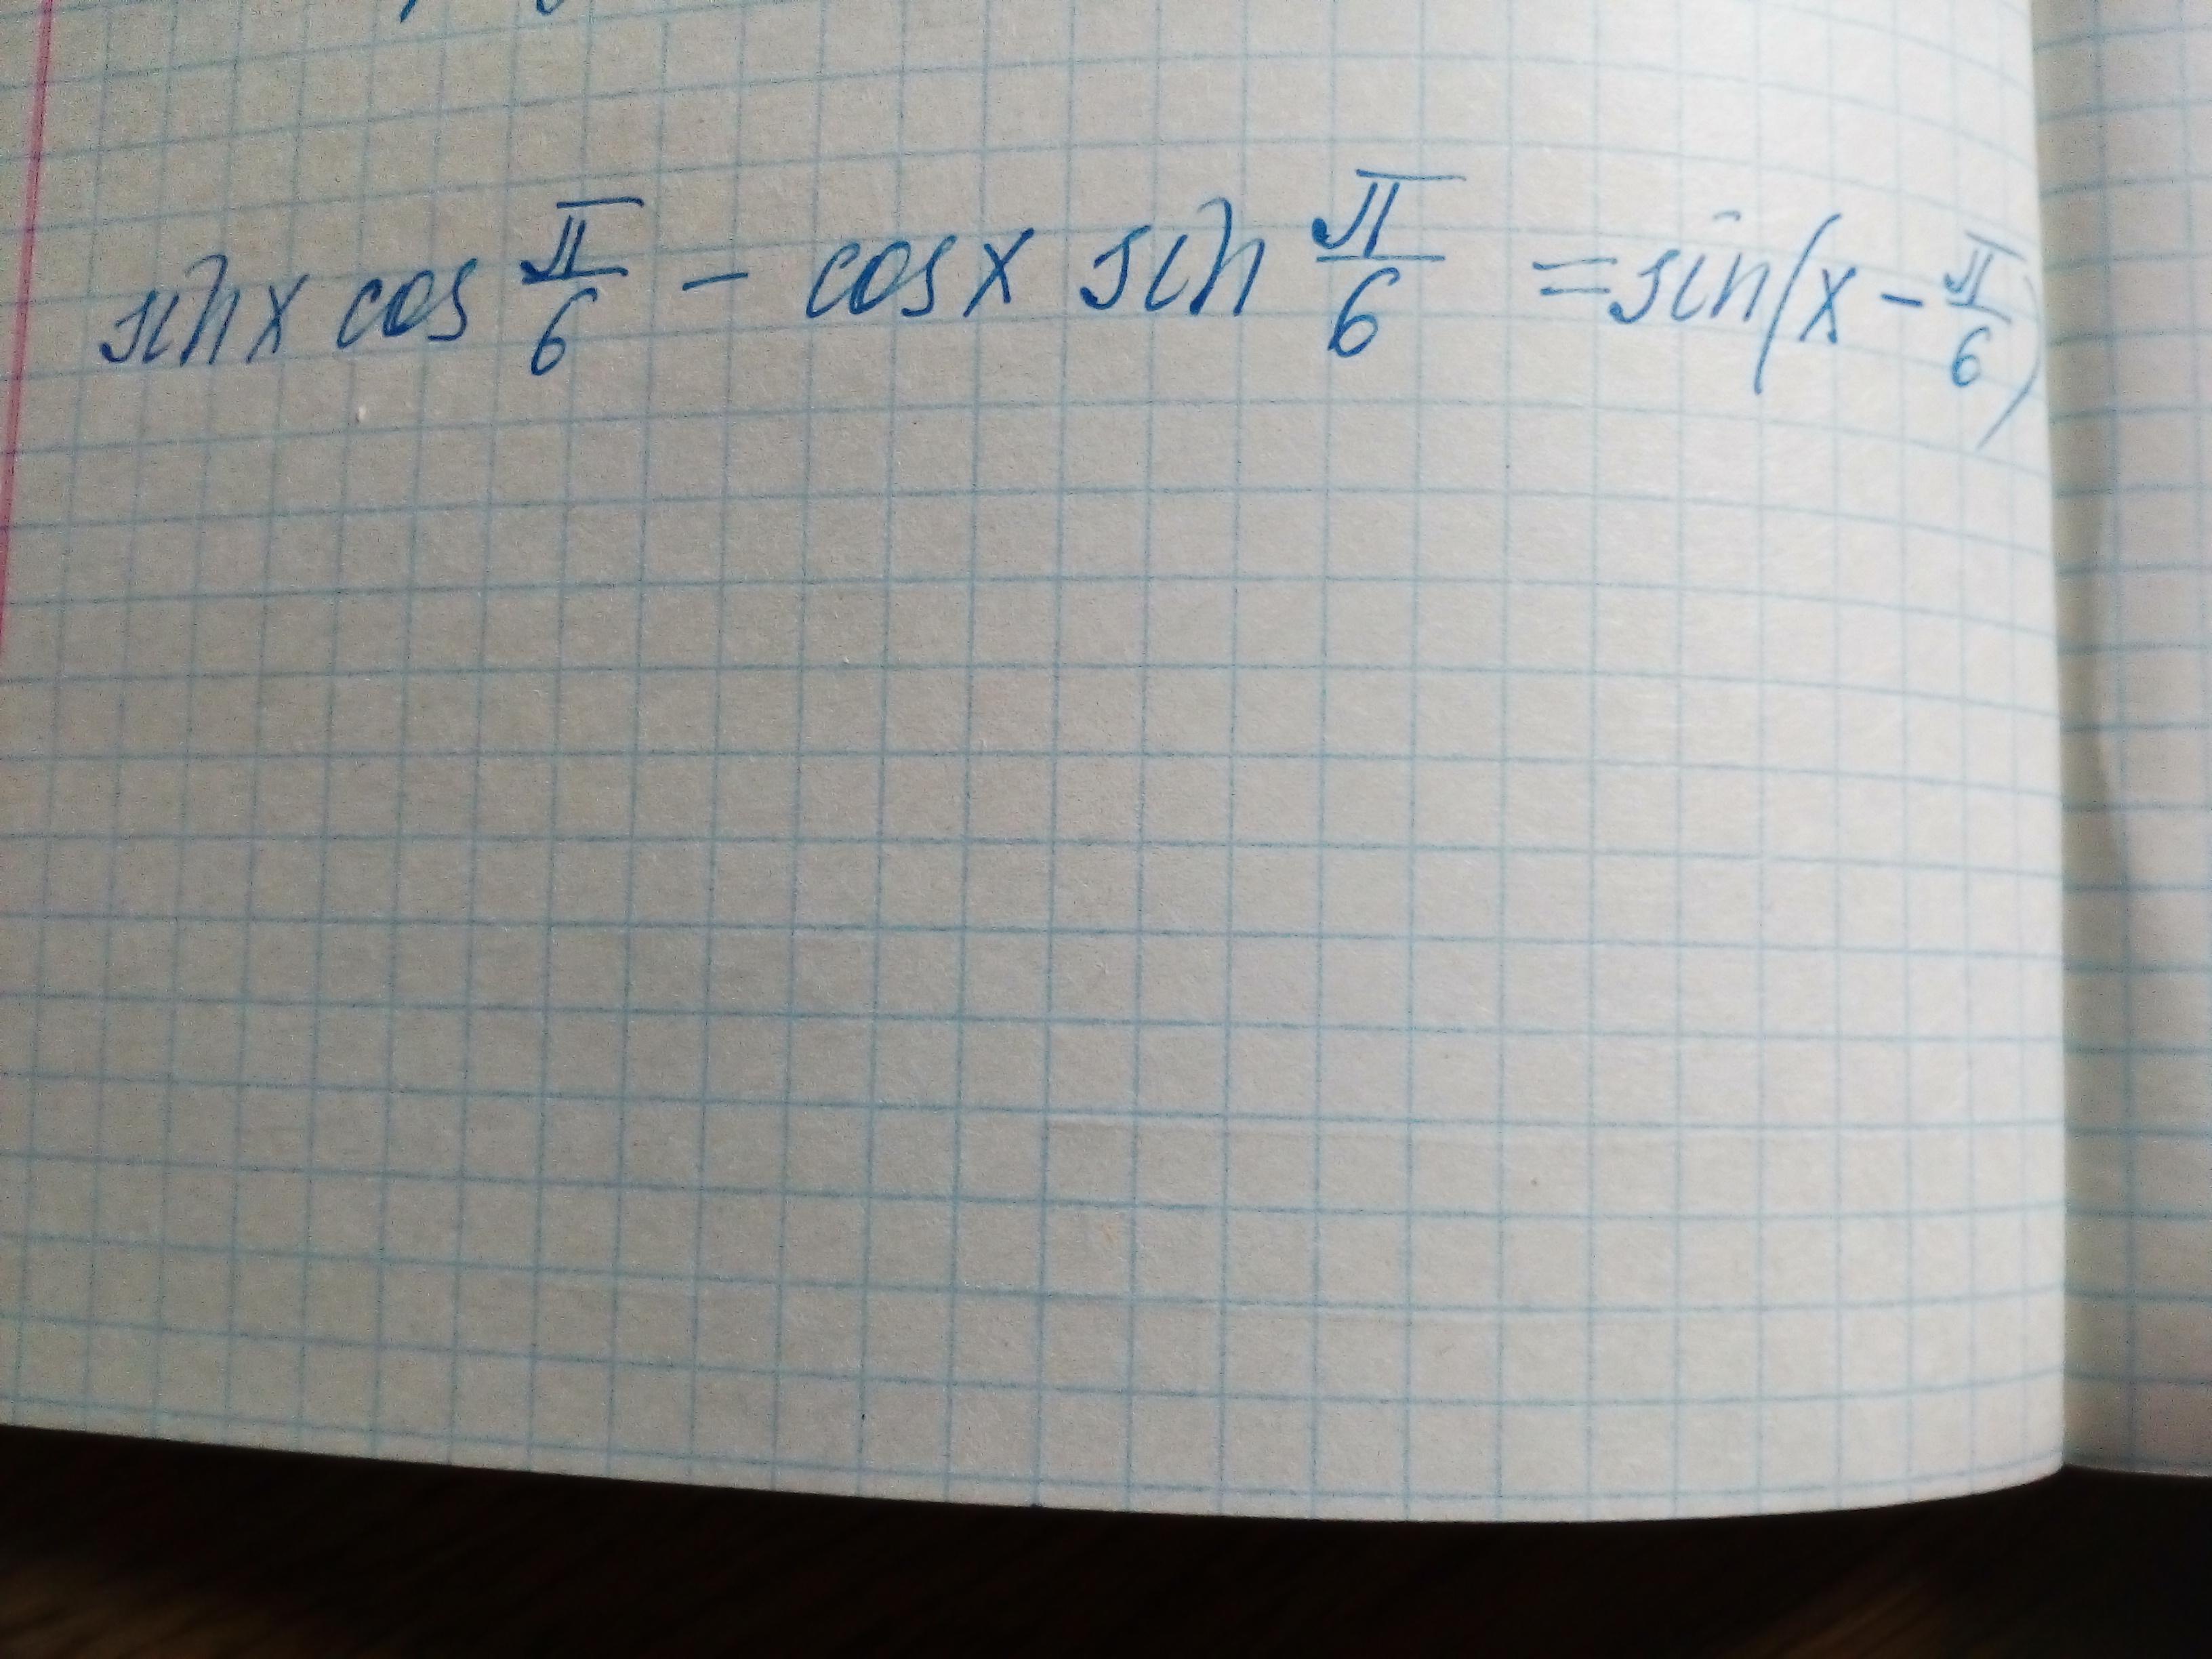 sin x cos π/6 - cos x sin π/6 = sin(x - π/6)